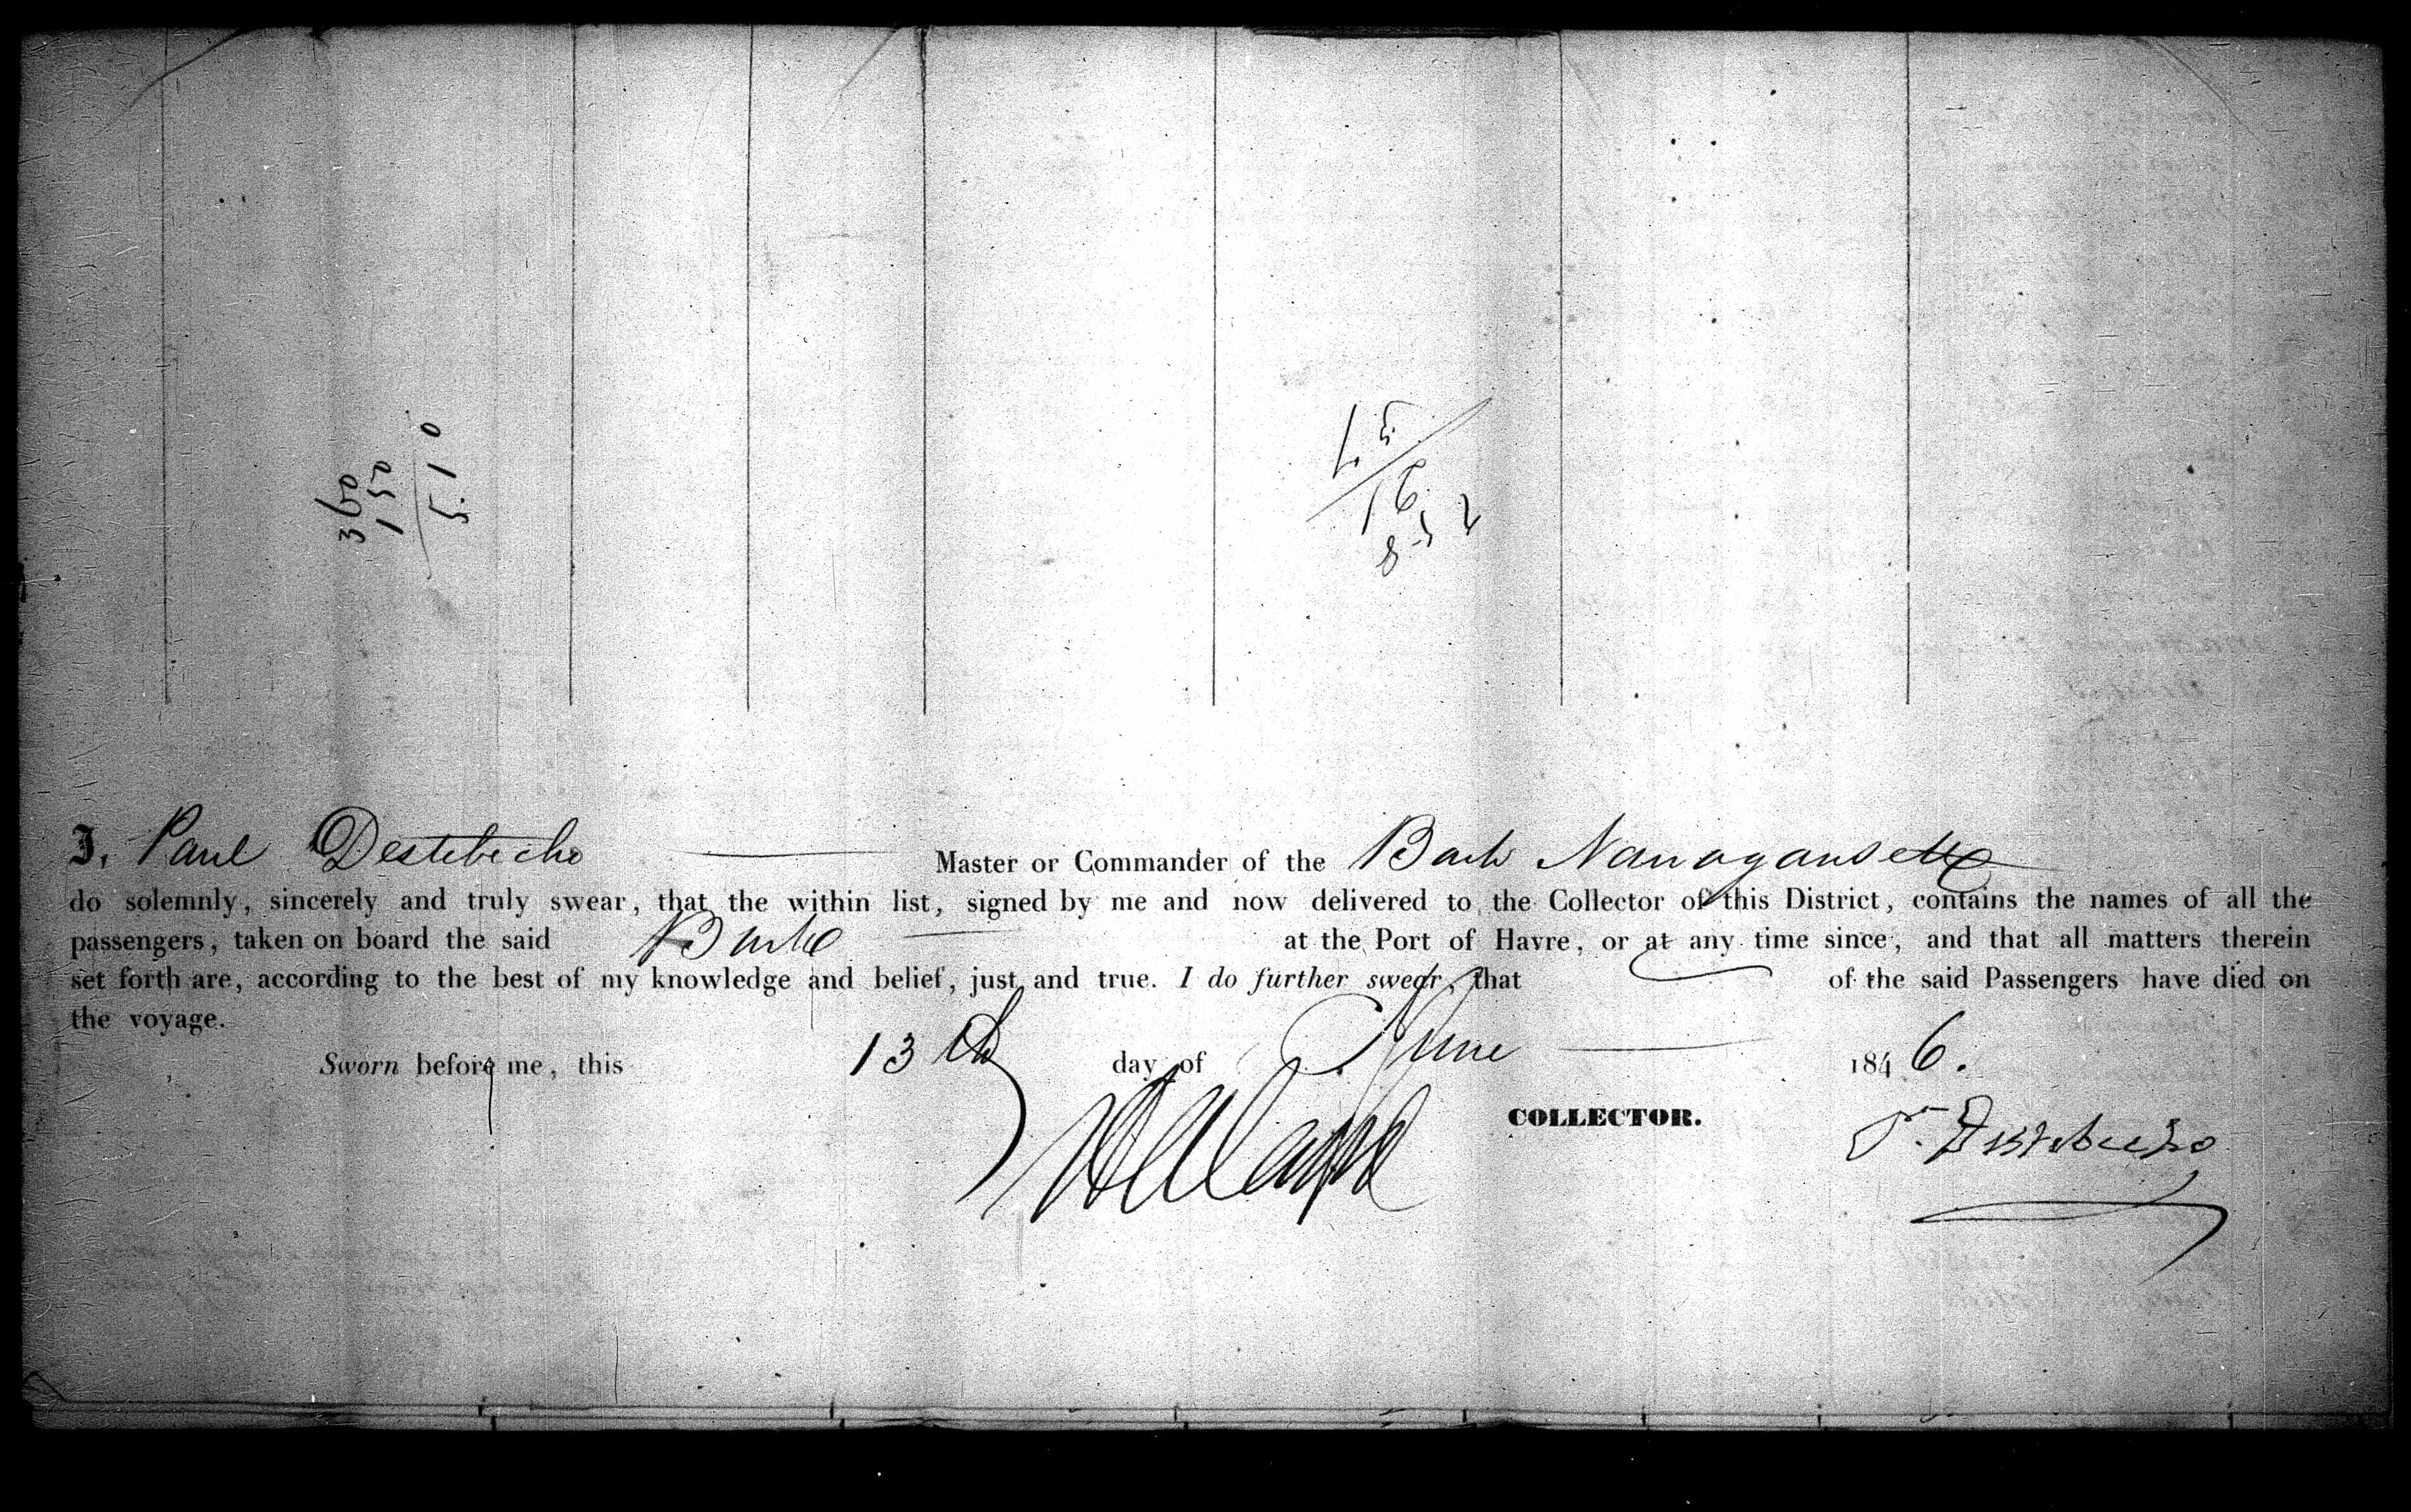 360
150
5.10
1.5
16
852
I, Paul Destebecho Master or Commander of the Bark Narragansett
do solemnly, sincerely and truly swear, that the within list, signed by me and now delivered to the Collector of this District, contains the names of all the
passengers, taken on board the said Bark at the Port of Havre, or at any time since, and that all matters therein
set forth are, according to the best of my knowledge and belief, just and true. I do further swear, that of the said Passengers have died on
the voyage.
Sworn before me, this 13th day of June 1846.
COLLECTOR.
P. Destebecho